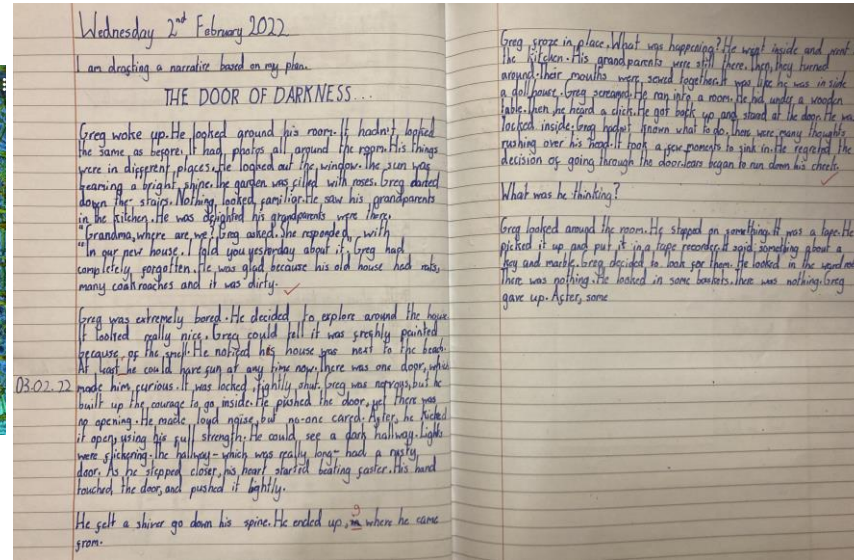 Wednesday 2nd February 2022
I am drafting a narrative based on my plan.
THE DOOR OF DARKNESS...
Greg woke up. He looked around his room. It hadn't looked
the same as before. It had photos all around the room. His things
were in different places. He looked out the window. The sun was
beaming a bright shine. the garden was filled with roses. Greg darted
down the stairs. Nothing looked familiar. He saw his grandparents
in the kitchen. He was delighted his grandparents were there.
"Grandma, where are we? Greg asked. She responded, with
"In our new house. I told you yesterday about it, Greg had
completely forgotten. He was glad because his old house had rats,
many coakroaches and it was dirty.
Greg was extremely bored. He decided to explore around the house
It looked really nice. Greg could tell it was freshly painted
because of the smell. He noticed his house was next to the beach.
At least he could have fun at any time now. there was one door, which
03.02.22 made him, curious. It was locked, tightly shut. Greg was nervous, but he
built up the courage to go inside. He pushed the door, yet there was
no opening. He made loud noise, but no-one cared. After, he kicked
it open, using his full strength. He could see a dark hallway. Lights
were flickering. The hallway - which was really long - had a rusty
door. As he stepped closer, his heart started beating faster. His hand
touched the door, and pushed it lightly.
He felt a shiver go down his spine. He ended up, where he came
from.
Greg froze in place. What was happening? He went inside and went
the kitchen. His grandparents were still there. Then, they turned
around. Their mouths were sewed together. It was like he was inside
a dollhouse. Greg screamed. He ran into a room. He hid, under a wooden
table. Then he heard a click. He got back up and stood at the door. He was
locked inside. Greg hadn't known what to do, there were many thoughts
rushing over his head. It took a few moments to sink in. He regretted the
decision of going through the door. tears began to run down his cheeks,
What was he thinking?
Greg looked around the room. He stepped on something. It was a tape. He
picked it up and put it in a tape recorder. It said something about a
key and marble. Greg decided to look for them. He looked in the
There was nothing. He looked in some baskets. there was nothing. Greg
gave up. After, some